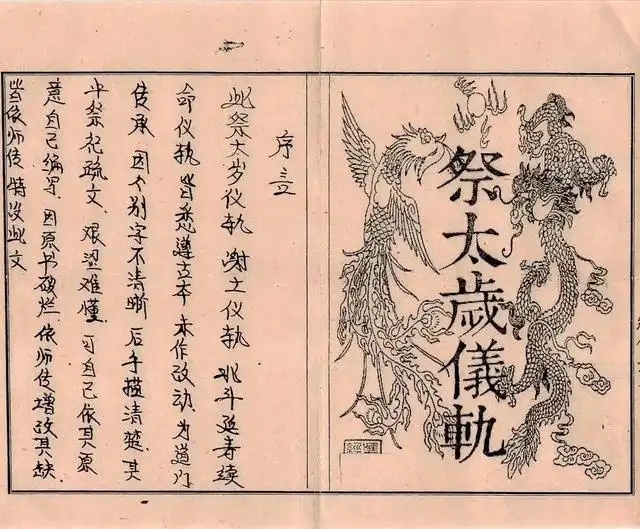 祭太歲儀軌
序言
此祭太岁仪轨 谢土仪轨 北斗延寿续
命仪轨 皆悉遵古本 未作改动 为道门
传承 因个别字不清晰 后手描清楚 其
中祭祀疏文 艰涩难懂 可自己依其原
意自己编写 因原书破烂 依师传增改其缺
皆依师传 特没此文